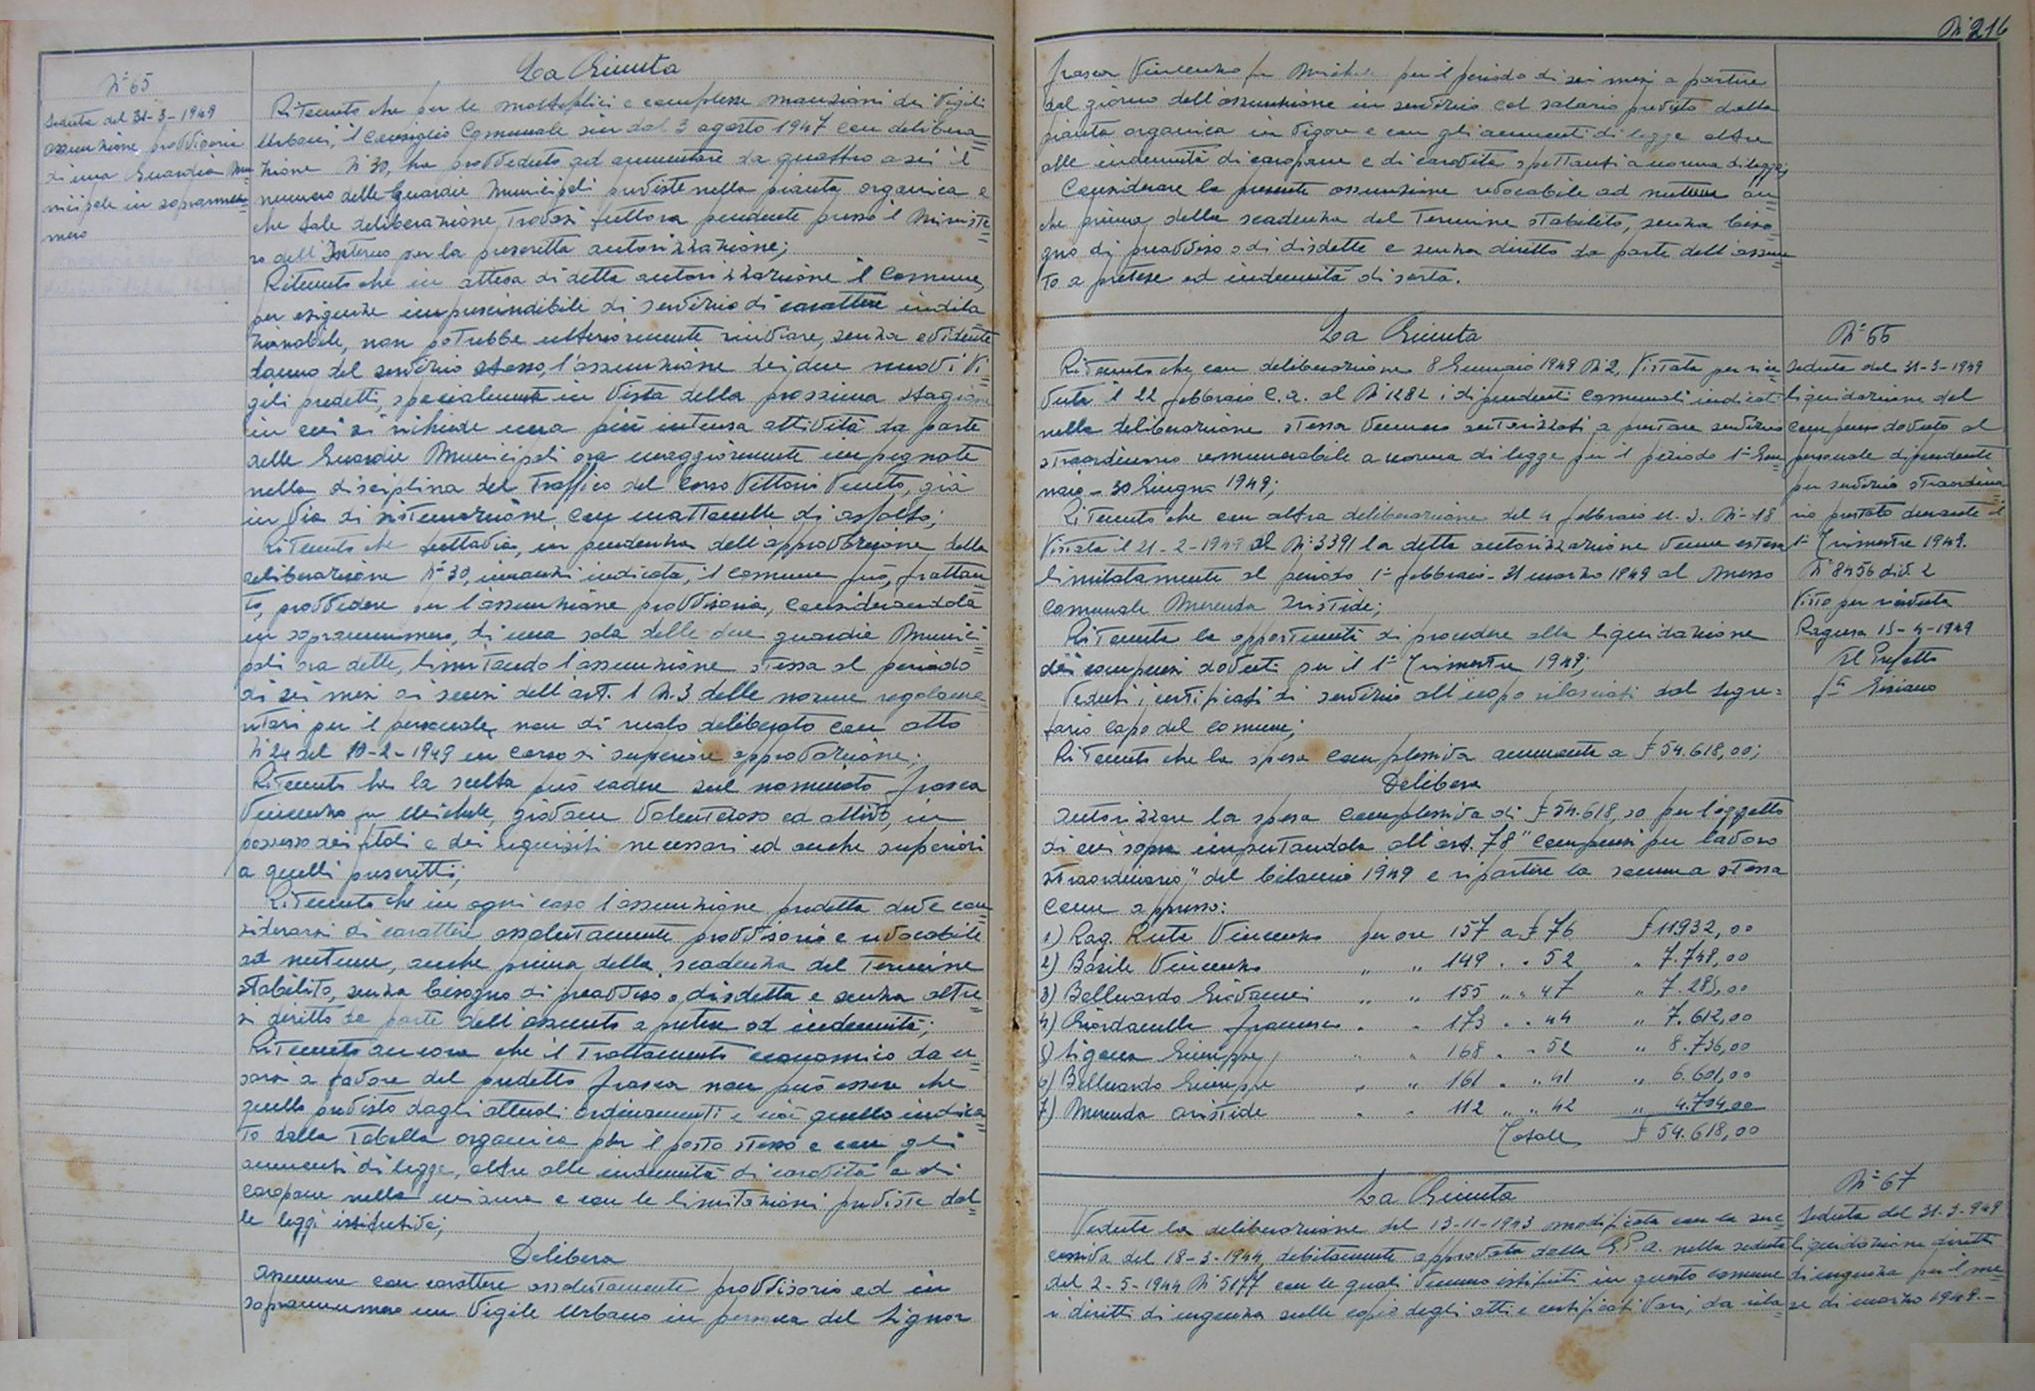 N° 65
Seduta del 31-3-1949
Assunzione provvisoria
di una Guardia Mu=
nicipale in soprannu=
mero
La Giunta
Ritenuto che per le molteplici e complesse mansioni dei Vigili
Urbani, il Consiglio Comunale sin dal 3 agosto 1947 con delibera=
zione N° 30, ha provveduto ad aumentare da quattro a sei il
numero delle Guardie Municipali previste nella pianta organica e
che tale deliberazione trovasi tuttora pendente presso il Ministe=
ro dell'Interno per la prescritta autorizzazione;
Ritenuto che in attesa di detta autorizzazione il Comune,
per esigenze imprescindibili di servizio di carattere indila
zionabile, non potrebbe ulteriormente rinviare, senza evidente
danno del servizio stesso, l'assunzione dei due nuovi Vi=
gili predetti, specialmente in vista della prossima stagione
in cui si richiede una più intensa attività da parte
delle Guardie Municipali ora maggiormente impegnate
nella disciplina del traffico del Corso Vittorio Veneto, già
in via di sistemazione con mattonelle di asfalto;
Ritenuto che tuttavia, in pendenza dell'approvazione della
deliberazione N° 30, innanzi indicata, il Comune può, frattan
to, provvedere per l'assunzione provvisoria, considerandola
in soprannumero, di una sola delle due guardie Munici=
pali ora dette, limitando l'assunzione stessa al periodo
di sei mesi ai sensi dell'art. 1 N. 3 delle norme regolame=
ntari per il personale non di ruolo deliberato con atto
N° 24 del 19-2-1949 in corso di superiore approvazione;
Ritenuto che la scelta può cadere sul nominato Frasca
Vincenzo fu Michele, giovane volenteroso ed attivo, in
possesso dei titoli e dei requisiti necessari ed anche superiori
a quelli prescritti;
Ritenuto che in ogni caso l'assunzione predetta deve con=
siderarsi di carattere assolutamente provvisorio e revocabile
ad nutum, anche prima della scadenza del termine
stabilito, senza bisogno di preavviso o disdetta e senza altre=
sì diritto da parte dell'assunto a pretese od indennità;
Ritenuto ancora che il trattamento economico da u=
sarsi a favore del predetto Frasca non può essere che
quello previsto dagli attuali ordinamenti e cioè quello indica=
to dalla tabella organica per il posto stesso e con gli
aumenti di legge, oltre alle indennità di carovita e di
caropane nella misura e con le limitazioni previste dal=
le leggi istitutive;
Delibera
Assumere con carattere assolutamente provvisorio ed in
soprannumero un Vigile Urbano in persona del Signor
N° 216
Frasca Vincenzo fu Michele per il periodo di sei mesi a partire
dal giorno dell'assunzione in servizio col salario previsto dalla
pianta organica in vigore e con gli aumenti di legge oltre
alle indennità di caropane e di carovita spettanti a norma di legge;
Considerare la presente assunzione revocabile ad nutum an=
che prima della scadenza del termine stabilito, senza biso=
gno di preavviso o di disdette e senza diritto da parte dell'assun=
to a pretese ed indennità di sorta.
La Giunta
Ritenuto che con deliberazione 8 Gennaio 1949 N° 2, vistata per rice=
vuta il 22 febbraio c.a. al N° 1282 i dipendenti comunali indicati
nella deliberazione stessa vennero autorizzati a prestare servizio
straordinario remunerabile a norma di legge per il periodo 1° Gen=
naio - 30 Giugno 1949;
Ritenuto che con altra deliberazione del 4 febbraio u.s. N° 18
vistata il 21-2-1949 al N° 3391 la detta autorizzazione venne estesa
limitatamente al periodo 1° febbraio - 31 marzo 1949 al Messo
Comunale Merenda Aristide;
Ritenuta la opportunità di procedere alla liquidazione
dei compensi dovuti per il 1° Trimestre 1949;
Veduti i certificati di servizio all'uopo rilasciati dal Segre=
tario Capo del Comune;
Ritenuto che la spesa complessiva ammonta a £ 54.618,00;
Delibera
Autorizzare la spesa complessiva di £ 54.618,00 per l'oggetto
di cui sopra imputandola all'art. 78 "Compensi per lavoro
straordinario" del bilancio 1949 e ripartire la somma stessa
come appresso:
1) Rag. Ruta Vincenzo per ore 157 a £ 76 £ 11932,00
2) Basile Vincenzo " " 149 " " 52 " 7.748,00
3) Belluardo Giovanni " " 155 " " 47 " 7.285,00
4) Giordanella Francesco " " 173 " " 44 " 7.612,00
5) Ligama Giuseppe " " 168 " " 52 " 8.736,00
6) Belluardo Giuseppe " " 161 " " 41 " 6.601,00
7) Merenda Aristide " " 112 " " 42 " 4.704,00
Totale £ 54.618,00
N° 66
Seduta del 31-3-1949
Liquidazione del
compenso dovuto al
personale dipendente
per servizio straordina=
rio prestato durante il
1° Trimestre 1949.
N° 8456 div. 2
Visto per ricevuta
Ragusa 15-4-1949
Il Prefetto
La Giunta
Veduta la deliberazione del 13-11-1943 modificata con la suc=
cessiva del 18-3-1944, debitamente approvata dalla G.P.A. nella seduta
del 2-5-1944 N° 5177 con le quali vennero istituiti in questo Comune
i diritti di urgenza sulle copie degli atti e certificati vari, da rila=
N° 67
Seduta del 31-3-949
Liquidazione diritti
di urgenza per il me=
se di marzo 1949.-